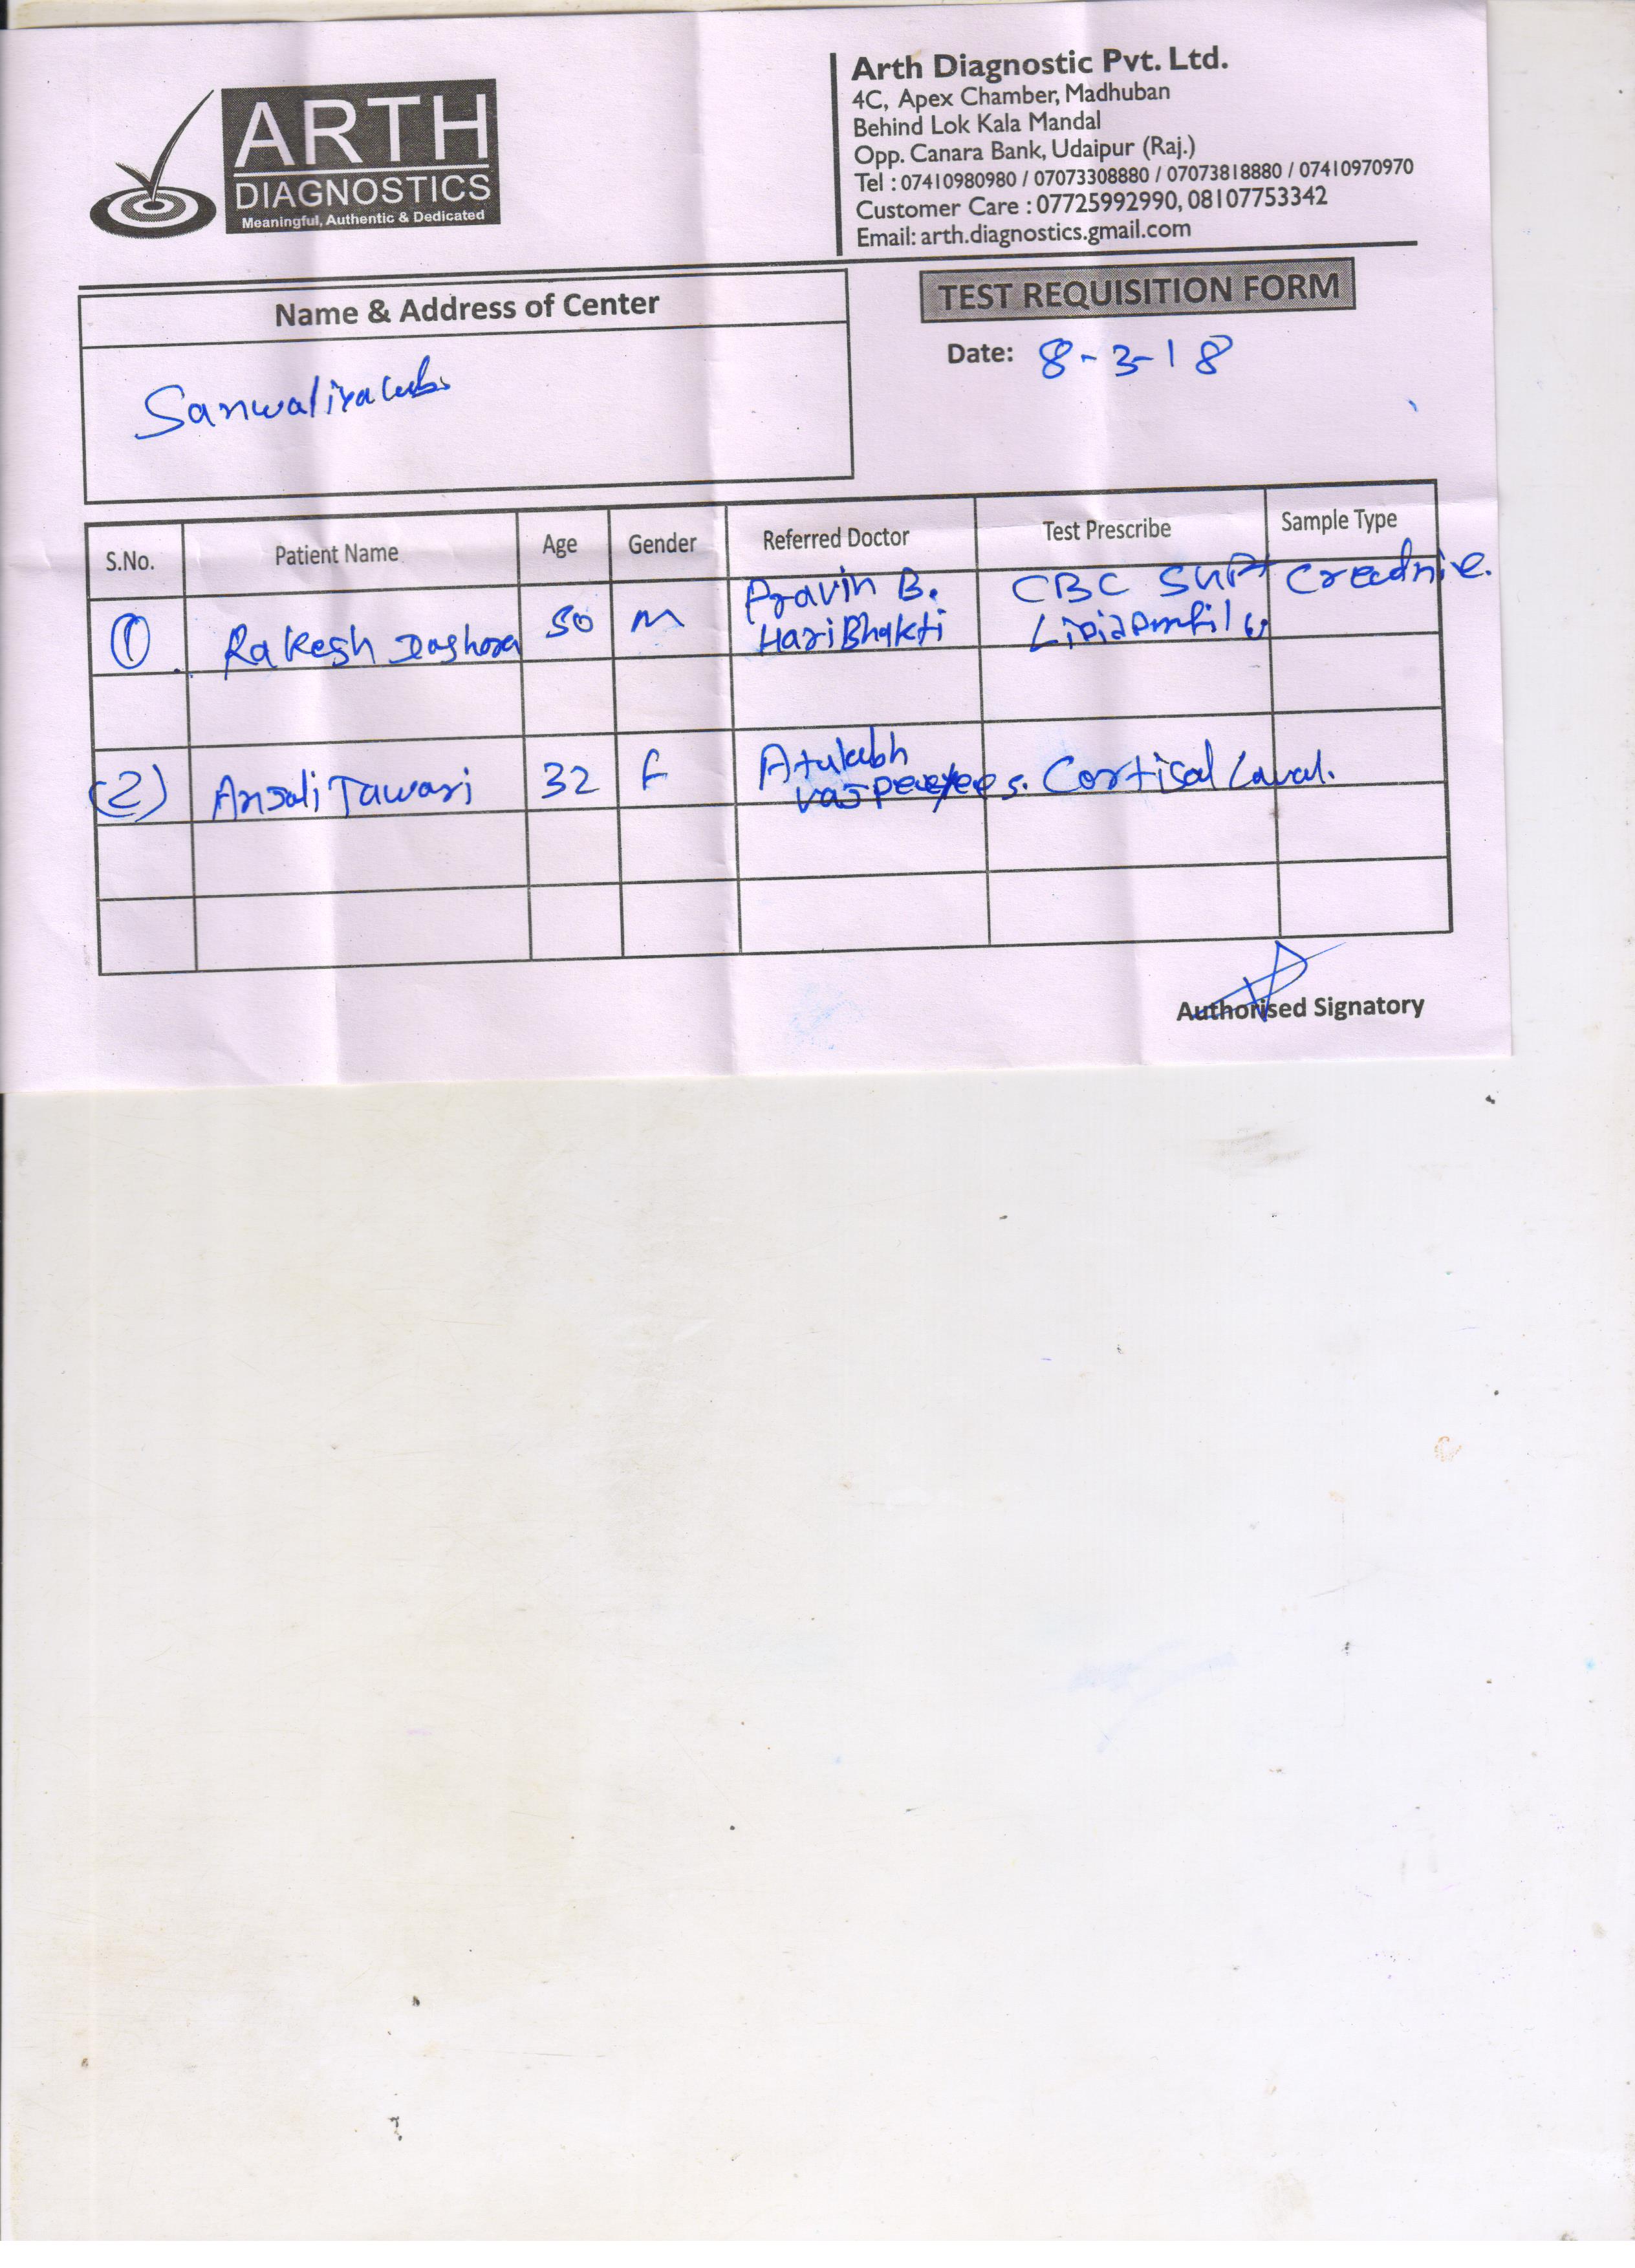 ARTH
DIAGNOSTICS
Meaningful, Authentic & Dedicated
Arth Diagnostic Pvt. Ltd.
4C, Apex Chamber, Madhuban
Behind Lok Kala Mandal
Opp. Canara Bank, Udaipur (Raj.)
Tel : 07410980980 / 07073308880 / 07073818880 / 07410970970
Customer Care : 07725992990, 08107753342
Email: arth.diagnostics.gmail.com
Name & Address of Center
TEST REQUISITION FORM
Date: 8-3-18
S.No. Patient Name Age Gender Referred Doctor Test Prescribe Sample Type
Pravin B. CBC
1 Rakesh Dashora 50 M HariBhakti
Atulabh
(2) Anjali Tawari 32 F s. Cortisal Laval.
Authorised Signatory